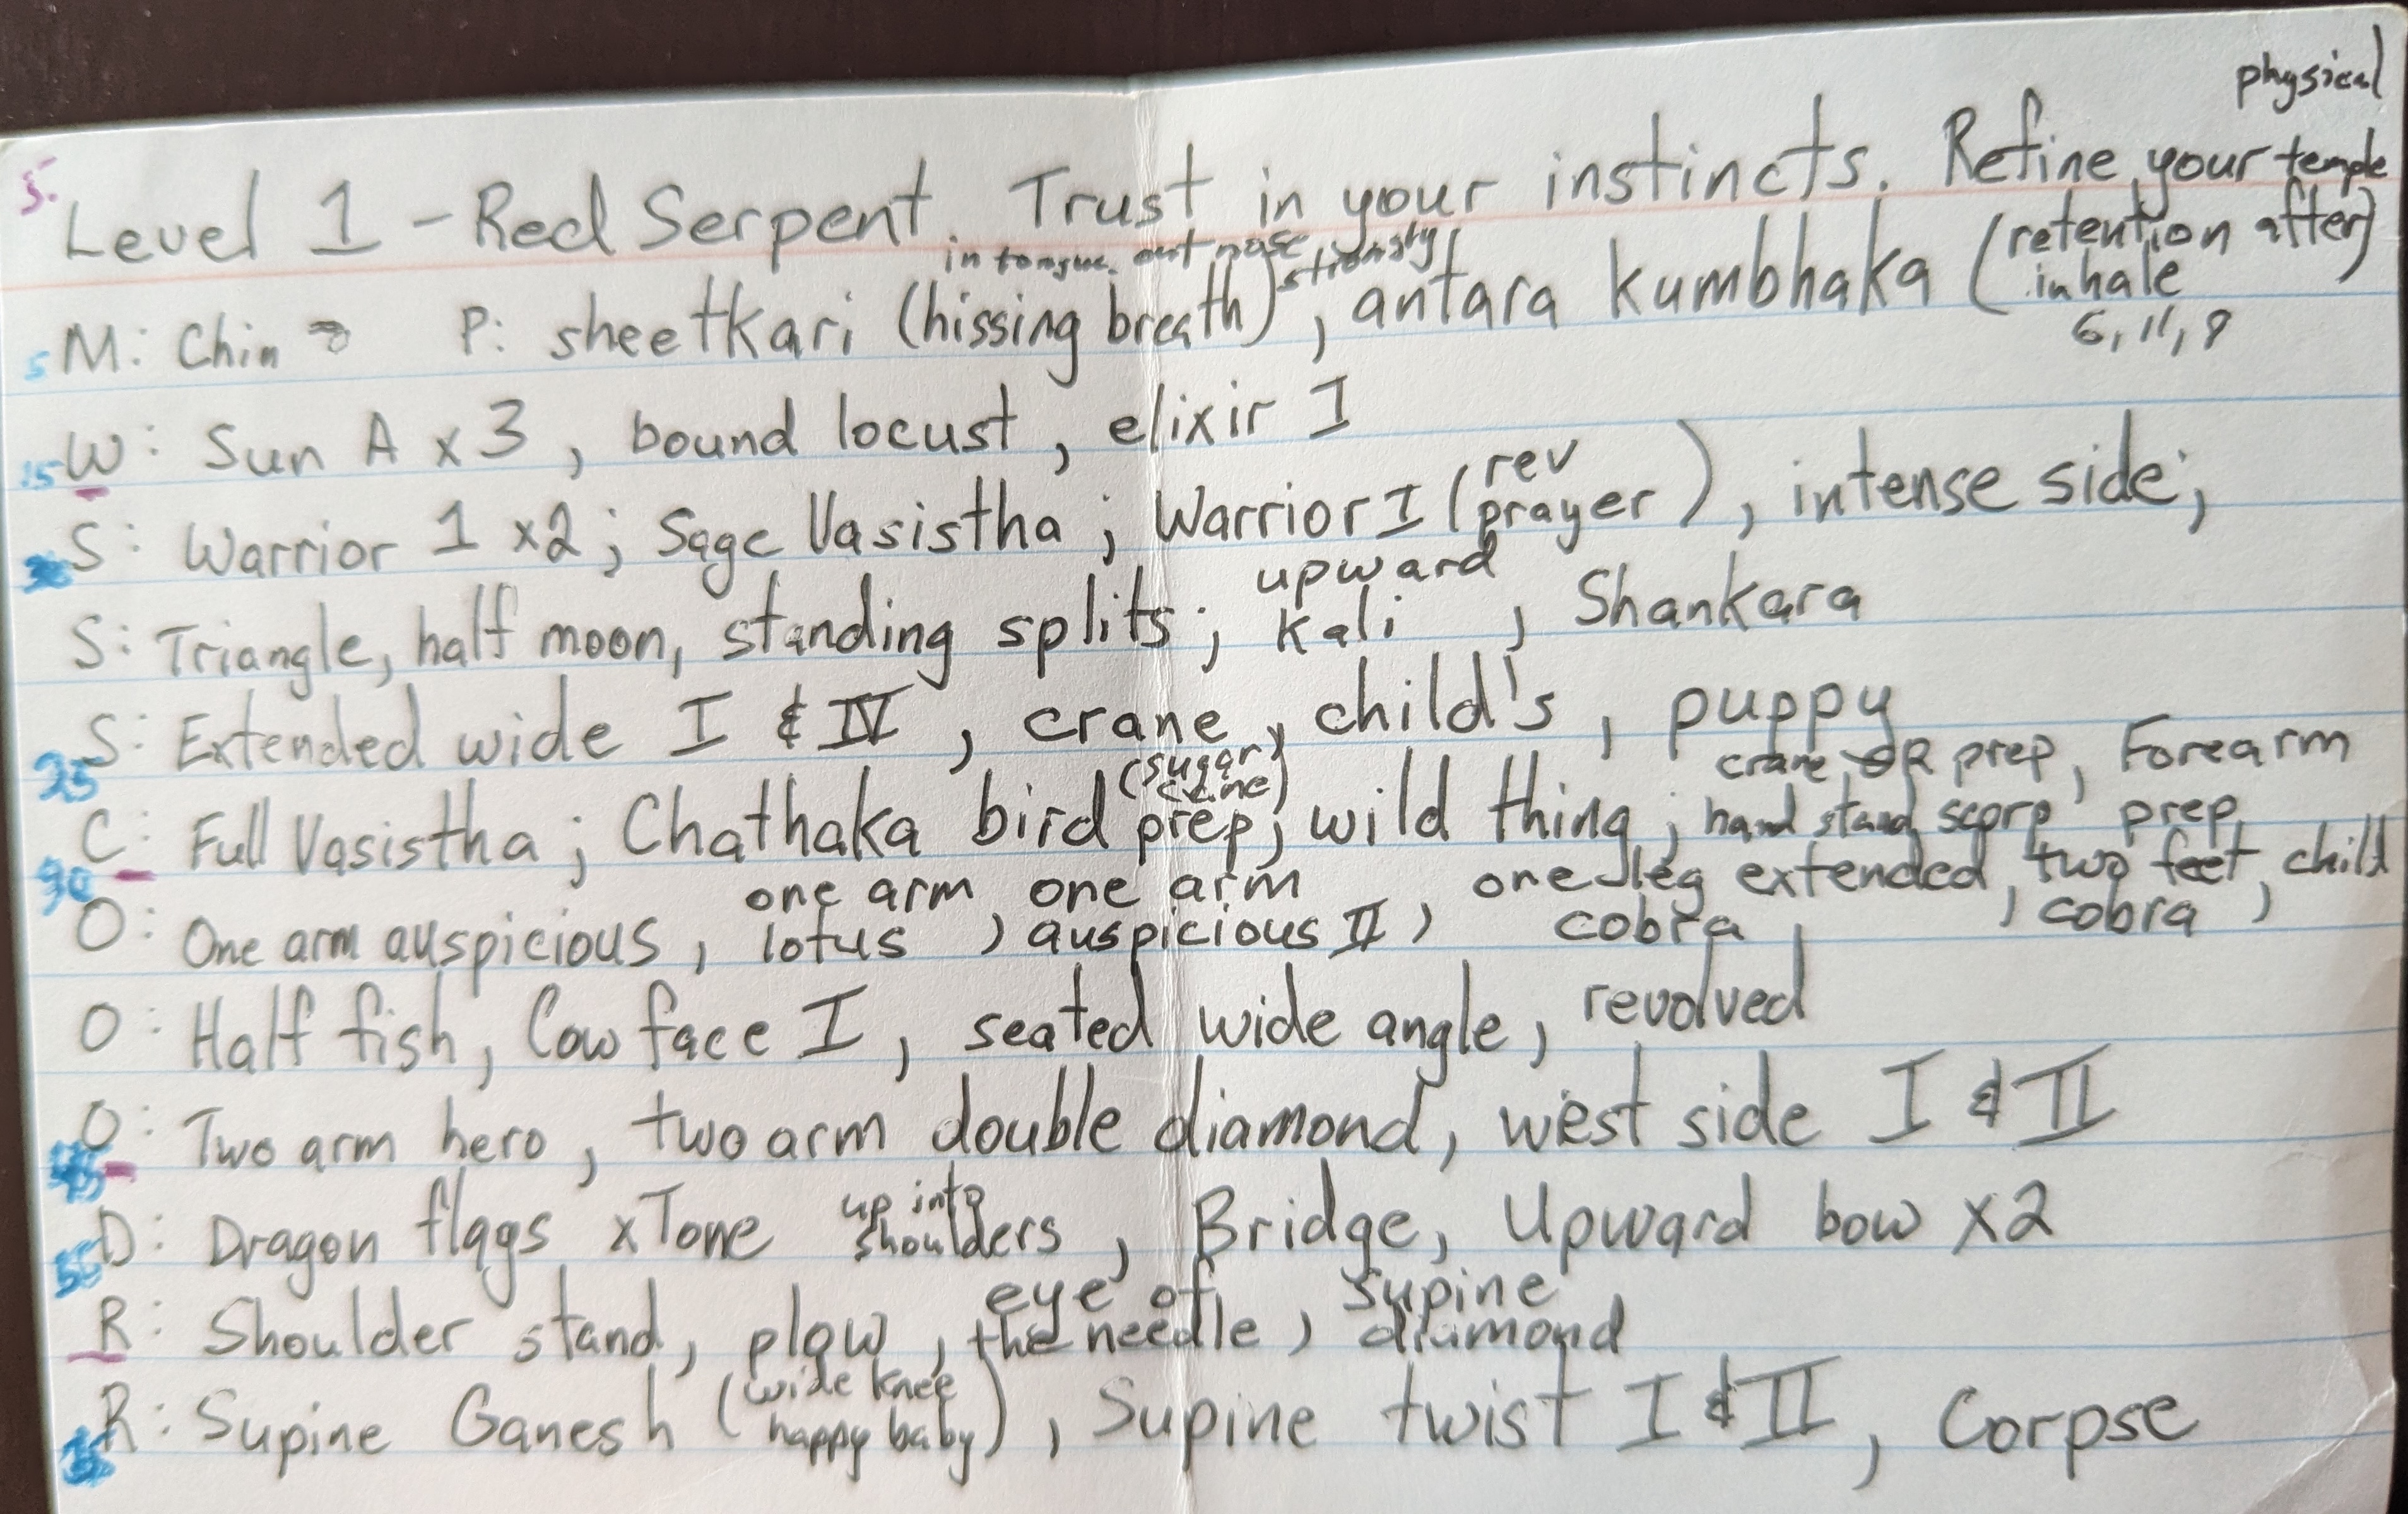 physical
5. Level 1 - Red Serpent. Trust in your instincts. Refine your temple
in tongue, out nose strongly
5 M: Chin P: sheetkari (hissing breath), antara kumbhaka (retention after inhale)
6, 11, 8
15 W: Sun A x 3, bound locust, elixir I
S: Warrior 1 x2; Sage Vasistha; Warrior I (rev prayer), intense side;
S: Triangle, half moon, standing splits; upward Kali, Shankara
S: Extended wide I & IV, crane, child's, puppy
25
C: Full Vasistha; Chathaka bird prep (sugar cane); wild thing; crane prep, hand stand scorp, Forearm prep
O: One arm auspicious, one arm lotus, one arm auspicious II, one leg extended cobra, two feet cobra, child
O: Half fish, Cow face I, seated wide angle, revolved
O: Two arm hero, two arm double diamond, west side I & II
D: Dragon flags x Tone up into shoulders, Bridge, Upward bow x2
R: Shoulder stand, plow, eye of the needle, supine diamond
R: Supine Ganesh (wide knee happy baby), Supine twist I & II, Corpse